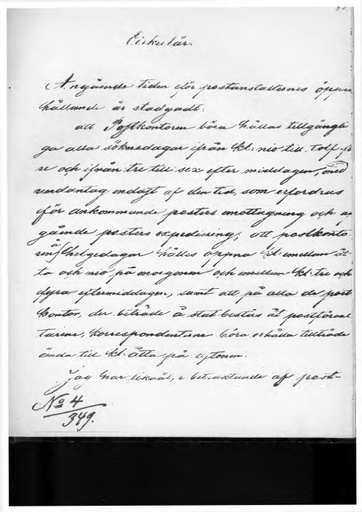 Cirkulär.
Angående tiden för postanstalternes öppen
hållande är stadgadt:
att Postkontoren böra hållas tillgängli
ga alla söknedagar ifrån kl. nio till tolf f
re och ifrån tre till sex efter middagen, med
undantag endast af den tid, som erfordras
för ankommande posters emottagning och af
gående posters expediering; att postkonto
ren å helgedagar hållas öppna kl. emellan åt
ta och nio på morgonen och emellan kl. tre och
fyra eftermiddagen, samt att på alla de post
kontor, der biträde å stat bestås åt postförval
tarene, korrespondenterna böra erhålla tillträde
ända till kl. åtta på aftonen.
Jag har likväl, i betraktande af post-
No 4
349.